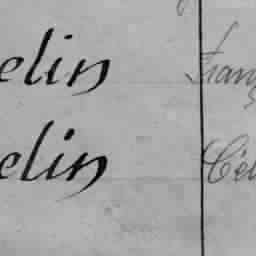 elin Franç
elin Cél